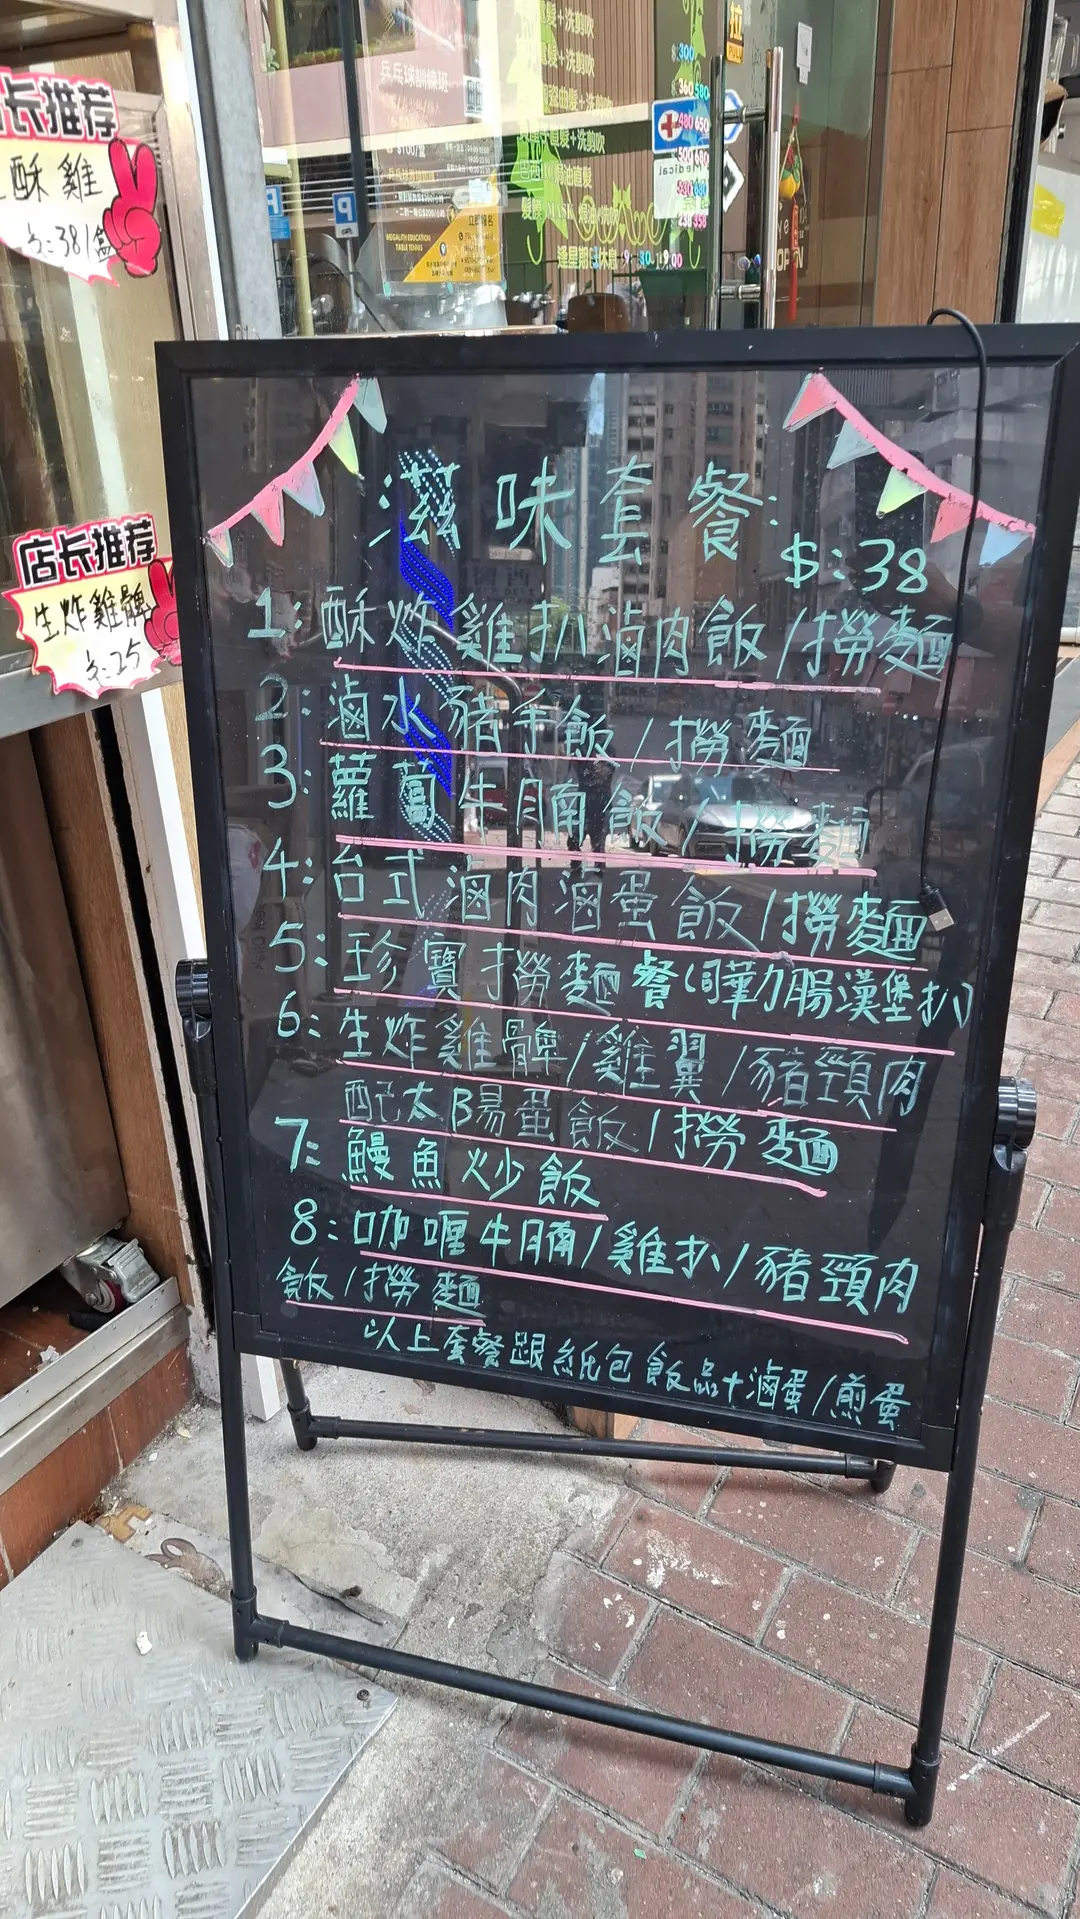 长推荐
酥雞
$:38/盒
店长推荐
生炸雞髀
$:25
乒乓球訓練班
MEGALITH EDUCATION
TABLE TENNIS
P
滋味套餐:
$:38
1:酥炸雞扒滷肉飯/撈麵
2:滷水豬手飯/撈麵
3:蘿蔔牛腩飯/撈麵
4:台式滷肉滷蛋飯/撈麵
5:珍寶撈麵餐(司華力腸漢堡扒)
6:生炸雞髀/雞翼/豬頸肉
配太陽蛋飯/撈麵
7:鰻魚炒飯
8:咖喱牛腩/雞扒/豬頸肉
飯/撈麵
以上套餐跟紙包飲品+滷蛋/煎蛋